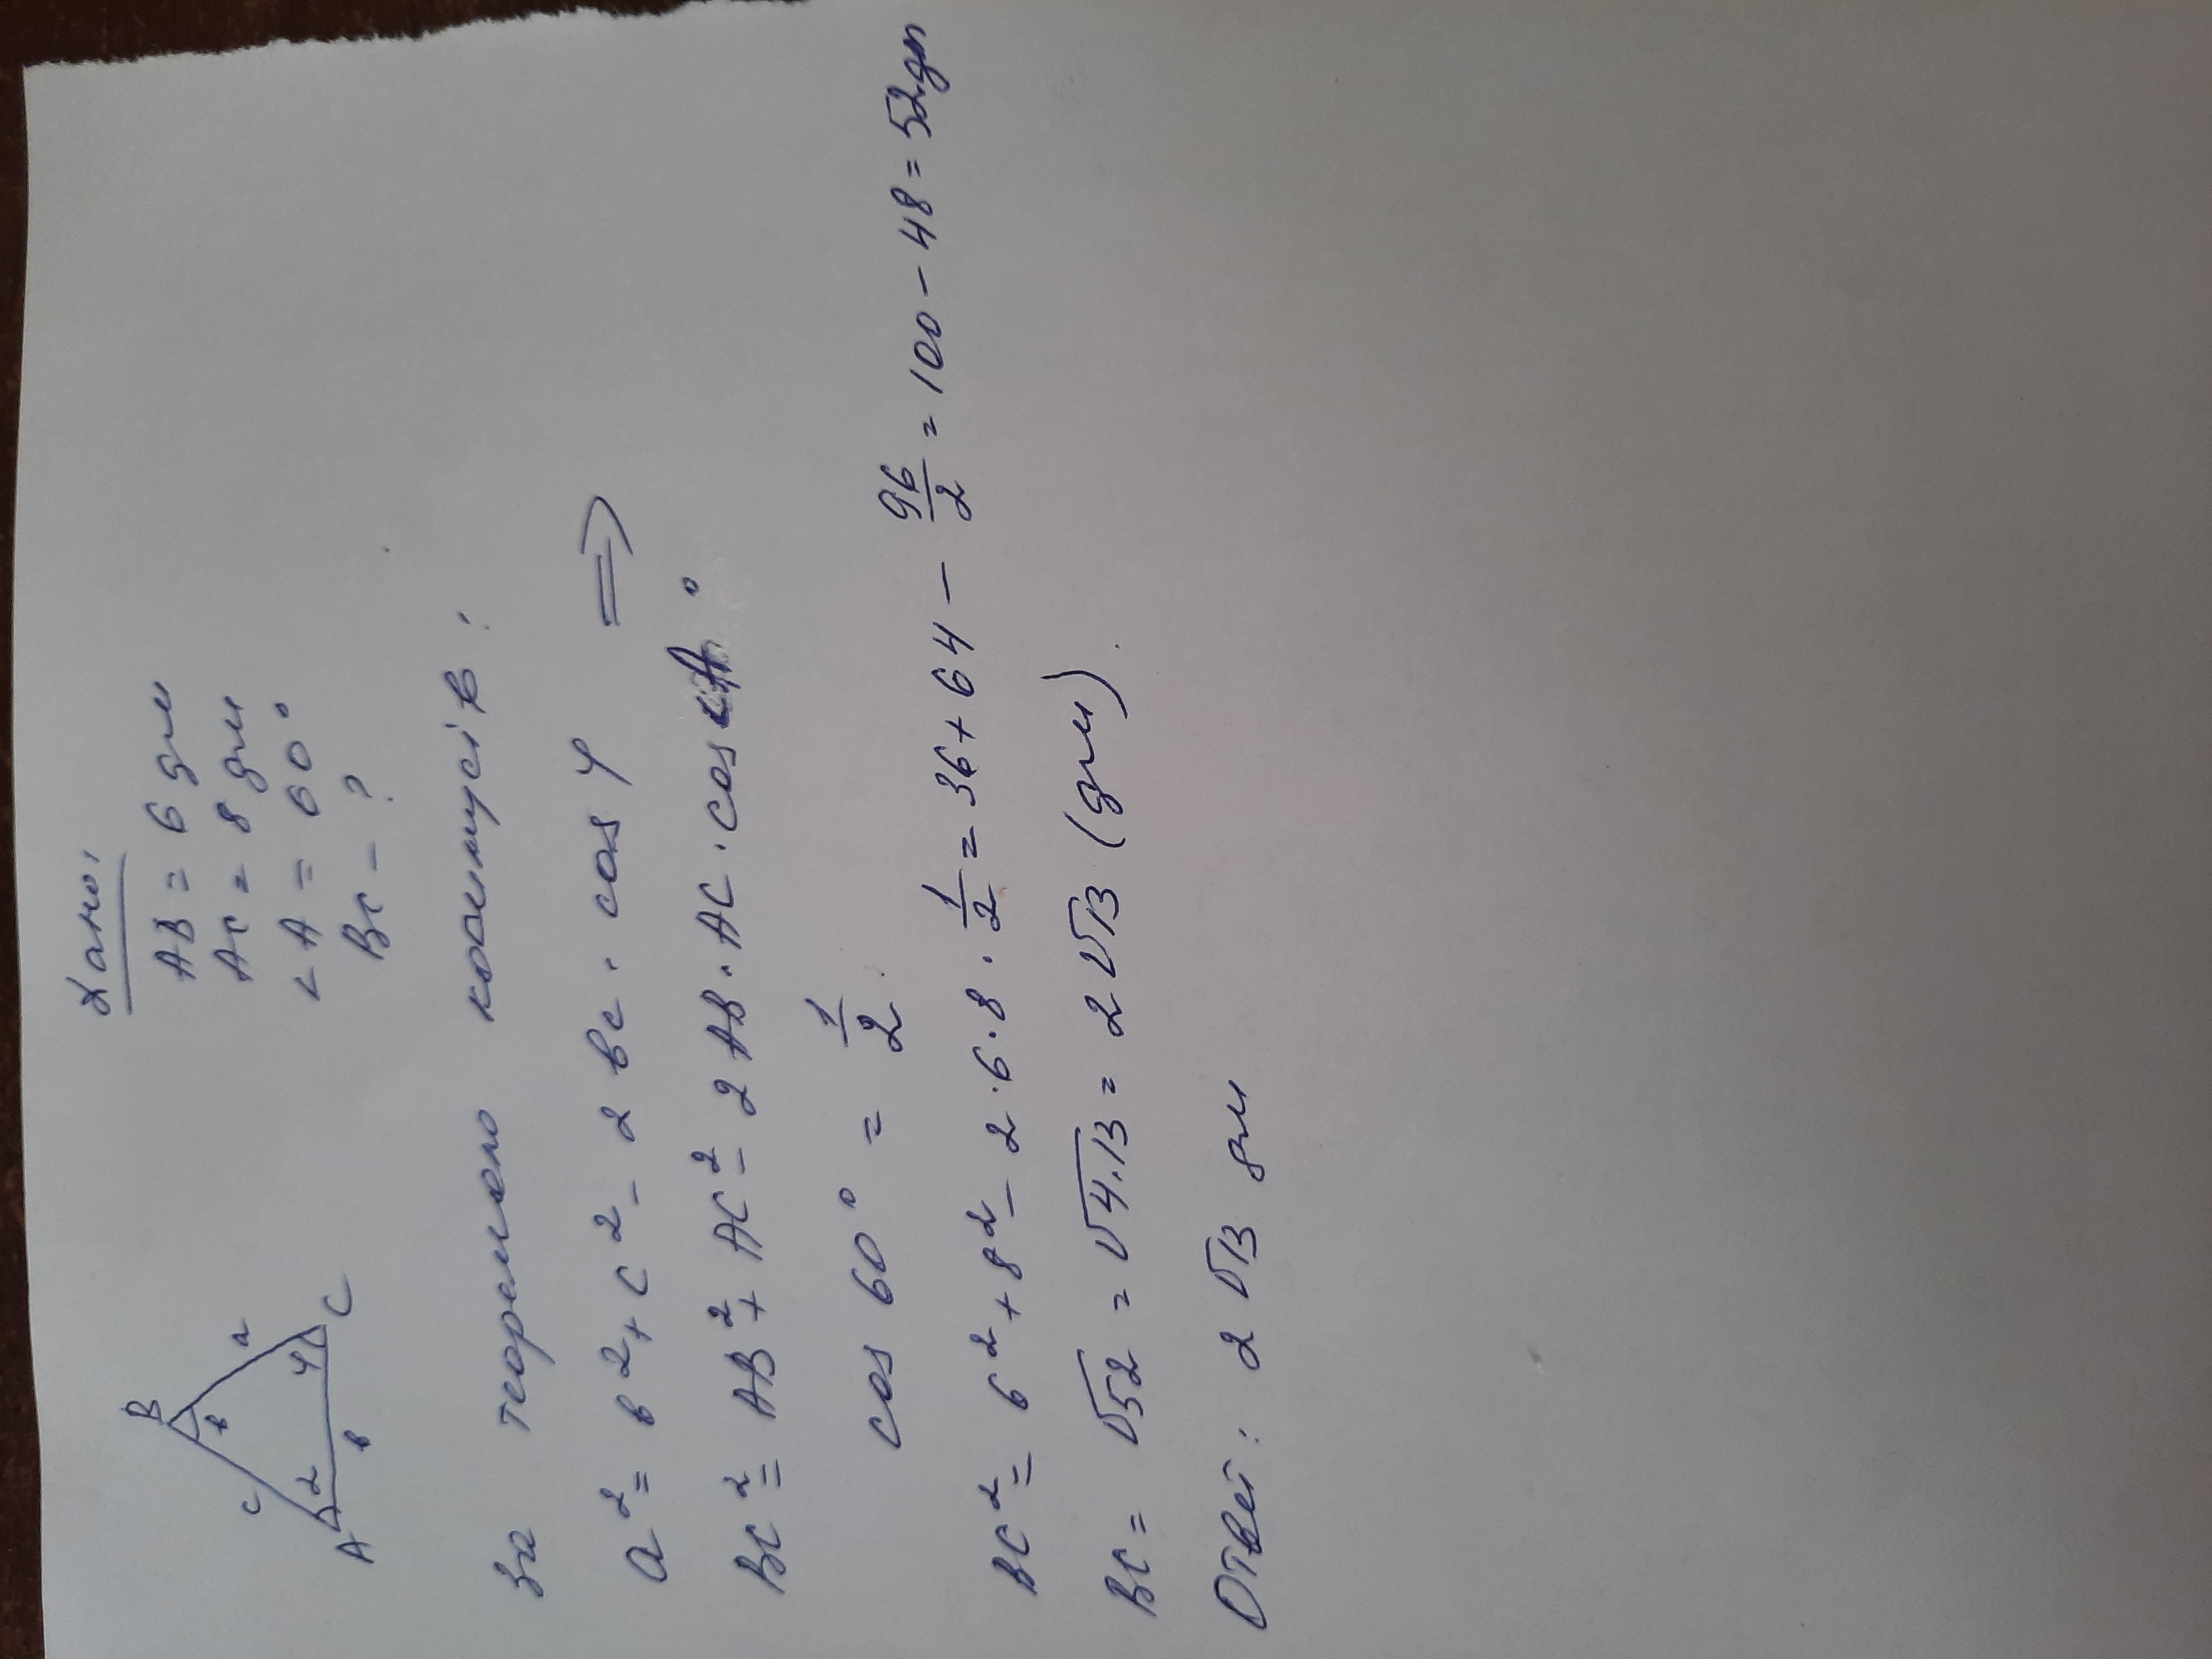 B
c
в
a
A
α
γ
C
в
Дано:
AB = 6 дм
AC = 8 дм
<A = 60°
BC - ?
За теоремою косинусів:
a² = в² + c² - 2вc · cos γ ⇒
BC² = AB² + AC² - 2AB · AC · cos <A°
cos 60° = 1/2.
BC² = 6² + 8² - 2·6·8 · 1/2 = 36 + 64 - 96/2 = 100 - 48 = 52 дм
BC = √52 = √4·13 = 2√13 (дм).
Ответ: 2√13 дм